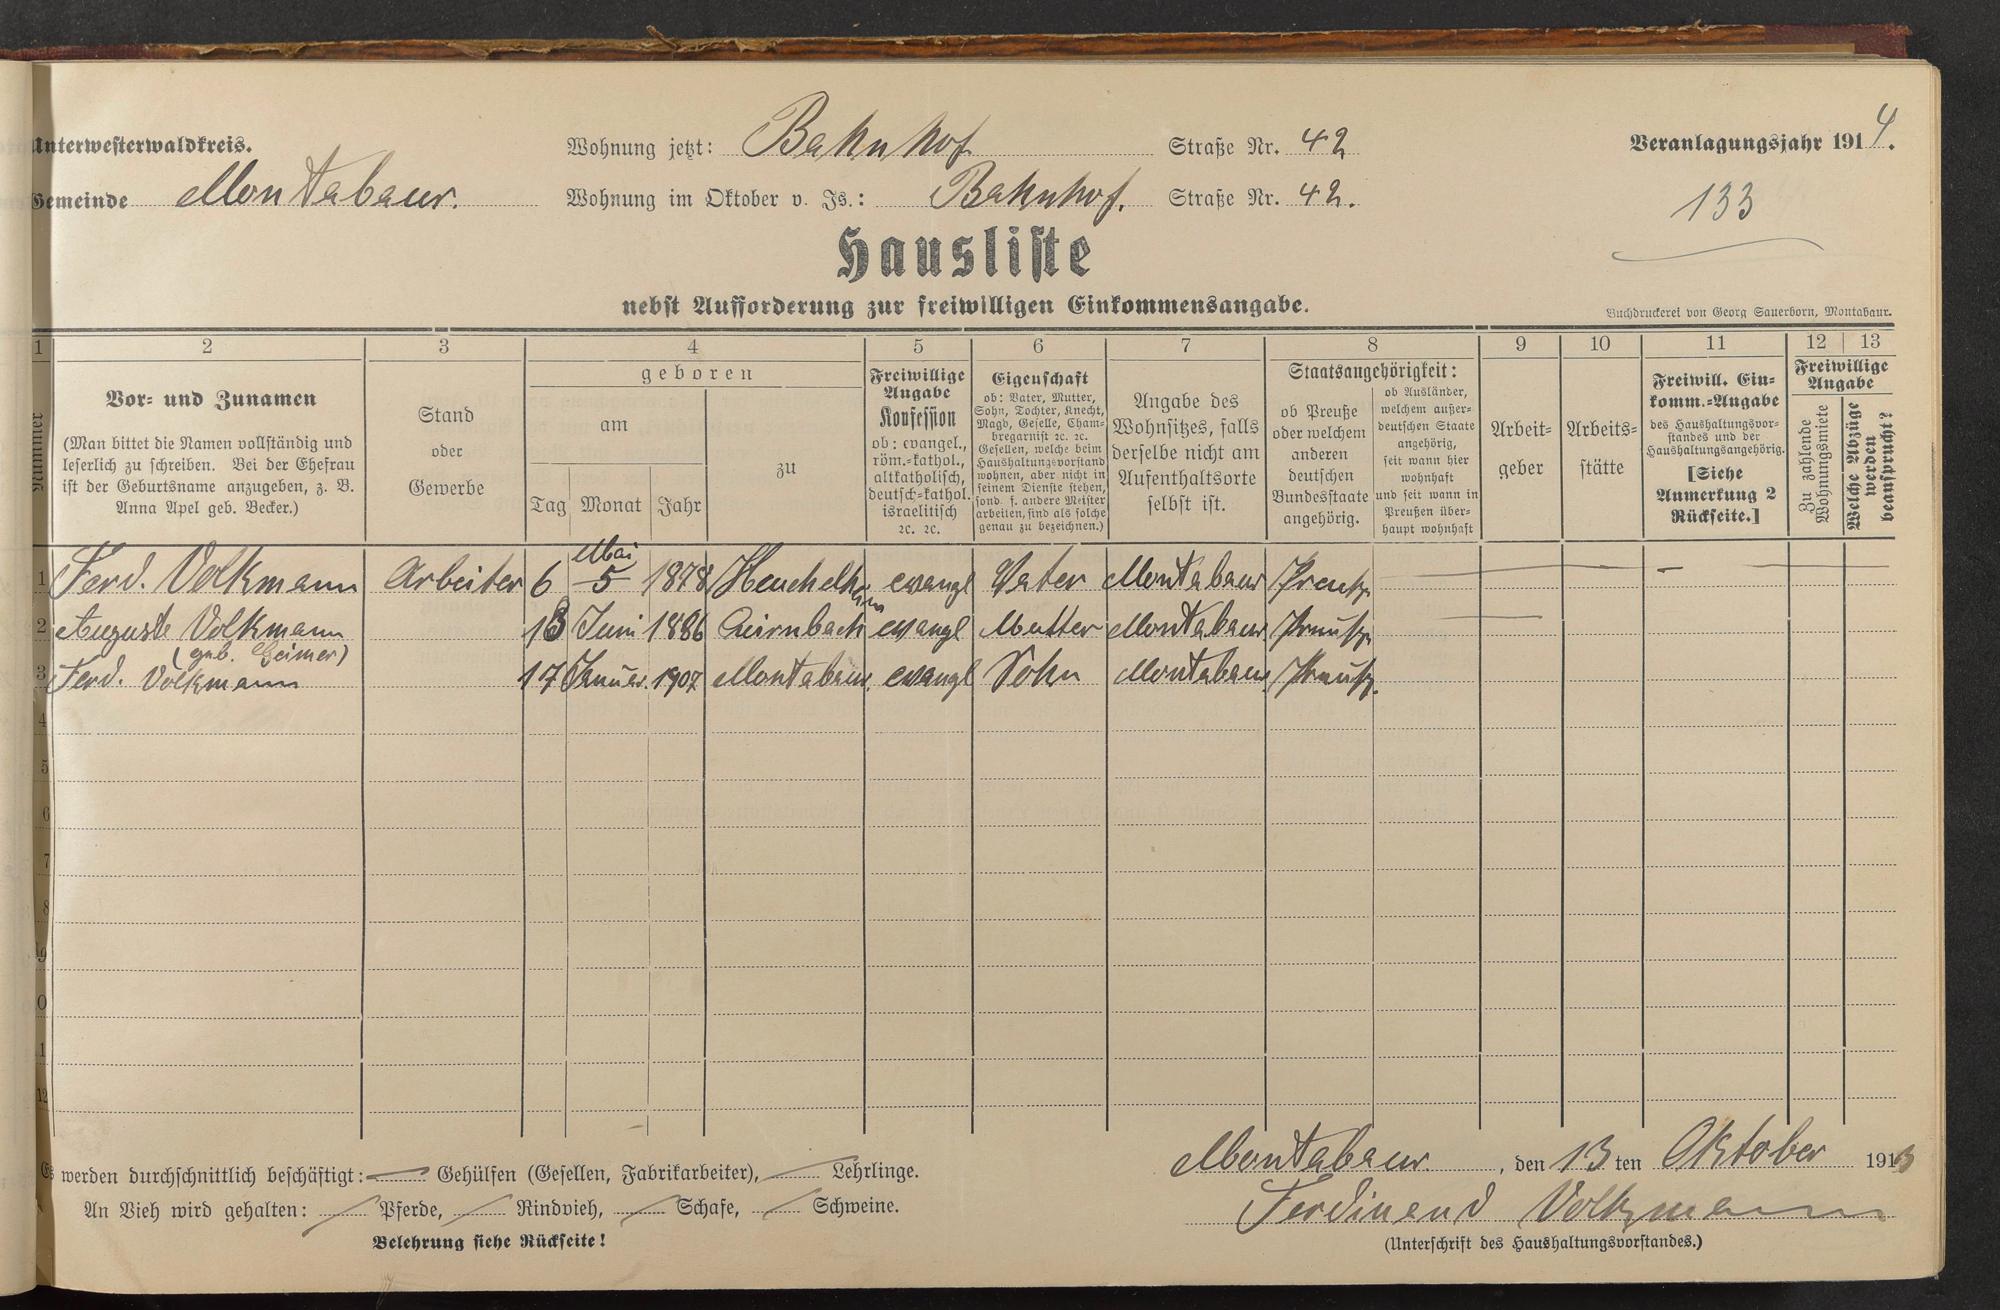 Unterwesterwaldkreis.
Wohnung jetzt: Bahnhof Straße Nr. 42
Veranlagungsjahr 1914.
Gemeinde Montabaur.
Wohnung im Oktober v. Js.: Bahnhof. Straße Nr. 42.
133
Hausliste
nebst Aufforderung zur freiwilligen Einkommensangabe.
Buchdruckerei von Georg Sauerborn, Montabaur.
1 2 3 4 5 6 7 8 9 10 11 12 13
Nummer
Vor- und Zunamen
(Man bittet die Namen vollständig und
leserlich zu schreiben. Bei der Ehefrau
ist der Geburtsname anzugeben, z. B.
Anna Apel geb. Becker.)
Stand
oder
Gewerbe
geboren
am
Tag Monat Jahr
zu
Freiwillige
Angabe
Konfession
ob: evangel.,
röm.-kathol.,
altkatholisch,
deutsch-kathol.
israelitisch
ꝛc. ꝛc.
Eigenschaft
ob: Vater, Mutter,
Sohn, Tochter, Knecht,
Magd, Geselle, Cham-
bregarnist ꝛc. ꝛc.
Gesellen, welche beim
Haushaltungsvorstand
wohnen, aber nicht in
seinem Dienste stehen,
sond. f. andere Meister
arbeiten, sind als solche
genau zu bezeichnen.)
Angabe des
Wohnsitzes, falls
derselbe nicht am
Aufenthaltsorte
selbst ist.
Staatsangehörigkeit:
ob Preuße
oder welchem
anderen
deutschen
Bundesstaate
angehörig.
ob Ausländer,
welchem außer-
deutschen Staate
angehörig,
seit wann hier
wohnhaft
und seit wann in
Preußen über-
haupt wohnhaft
Arbeit-
geber
Arbeits-
stätte
Freiwill. Ein-
komm.-Angabe
des Haushaltungsvor-
standes und der
Haushaltungsangehörig.
[Siehe
Anmerkung 2
Rückseite.]
Freiwillige
Angabe
Zu zahlende
Wohnungsmiete
Welche Abzüge
werden
beansprucht?
Mai
1 Ferd. Volkmann Arbeiter 6 5 1878 Heuchelheim evangl Vater Montabaur Preuß.
2 Auguste Volkmann 13 Juni 1886 evangl Mutter Montabaur Preuß.
(geb. Geimer)
3 Ferd. Volkmann 17 Januar. 1907 Montabaur. evangl Sohn Montabaur Preuß.
4
5
6
7
8
9
10
11
12
Montabaur, den 13ten Oktober 1913
Es werden durchschnittlich beschäftigt: — Gehülfen (Gesellen, Fabrikarbeiter), — Lehrlinge.
An Vieh wird gehalten: / Pferde, / Rindvieh, / Schafe, / Schweine.
Ferdinand Volkmann
Belehrung siehe Rückseite!
(Unterschrift des Haushaltungsvorstandes.)